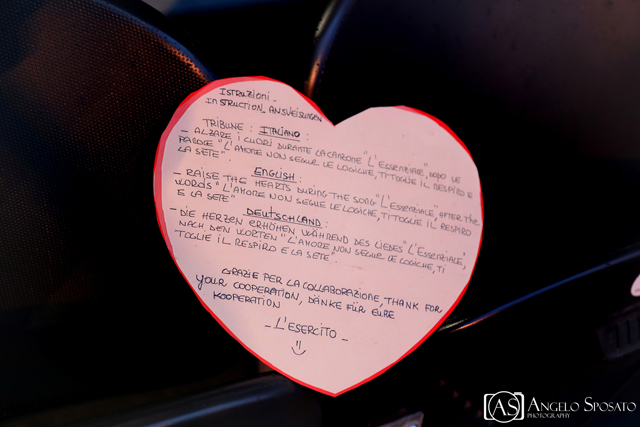 ISTRUZIONI -
INSTRUCTION - ANSVEISUNGEN
TRIBUNE : ITALIANO :
- ALZARE I CUORI DURANTE LA CANZONE "L'ESSENZIALE", DOPO LE
PAROLE "L'AMORE NON SEGUE LE LOGICHE, TI TOGLIE IL RESPIRO E
LA SETE".
ENGLISH :
- RAISE THE HEARTS DURING THE SONG "L'ESSENZIALE", AFTER THE
WORDS "L'AMORE NON SEGUE LE LOGICHE, TI TOGLIE IL RESPIRO
E LA SETE"
DEUTSCHLAND :
- DIE HERZEN ERHÖHEN WÄHREND DES LIEDES "L'ESSENZIALE",
NACH DEN WORTEN "L'AMORE NON SEGUE LE LOGICHE, TI
TOGLIE IL RESPIRO E LA SETE".
GRAZIE PER LA COLLABORAZIONE, THANK FOR
YOUR COOPERATION, DÄNKE FÜR EURE
KOOPERATION
- L'ESERCITO -
=)
AS ANGELO SPOSATO
PHOTOGRAPHY